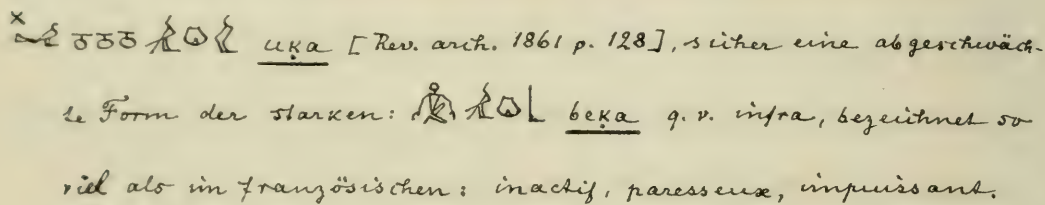 × uḳa [Rev. arch. 1861 p. 128], sicher eine abgeschwäch-
te Form der starken: beḳa q. v. infra, bezeichnet so
viel als im französischen: inactif, paresseux, impuissant.